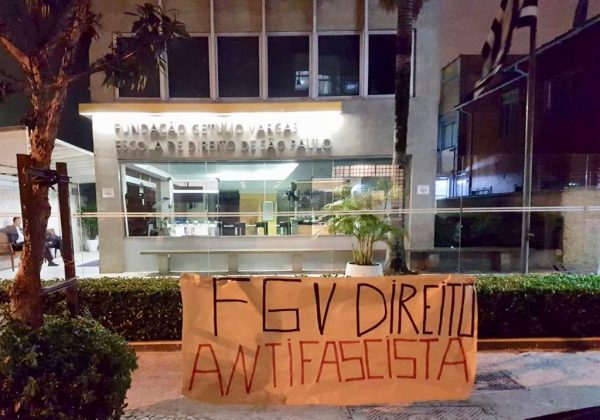 FUNDAÇÃO GETULIO VARGAS
ESCOLA DE DIREITO DE SÃO PAULO
FGV DIREITO
ANTIFASCISTA